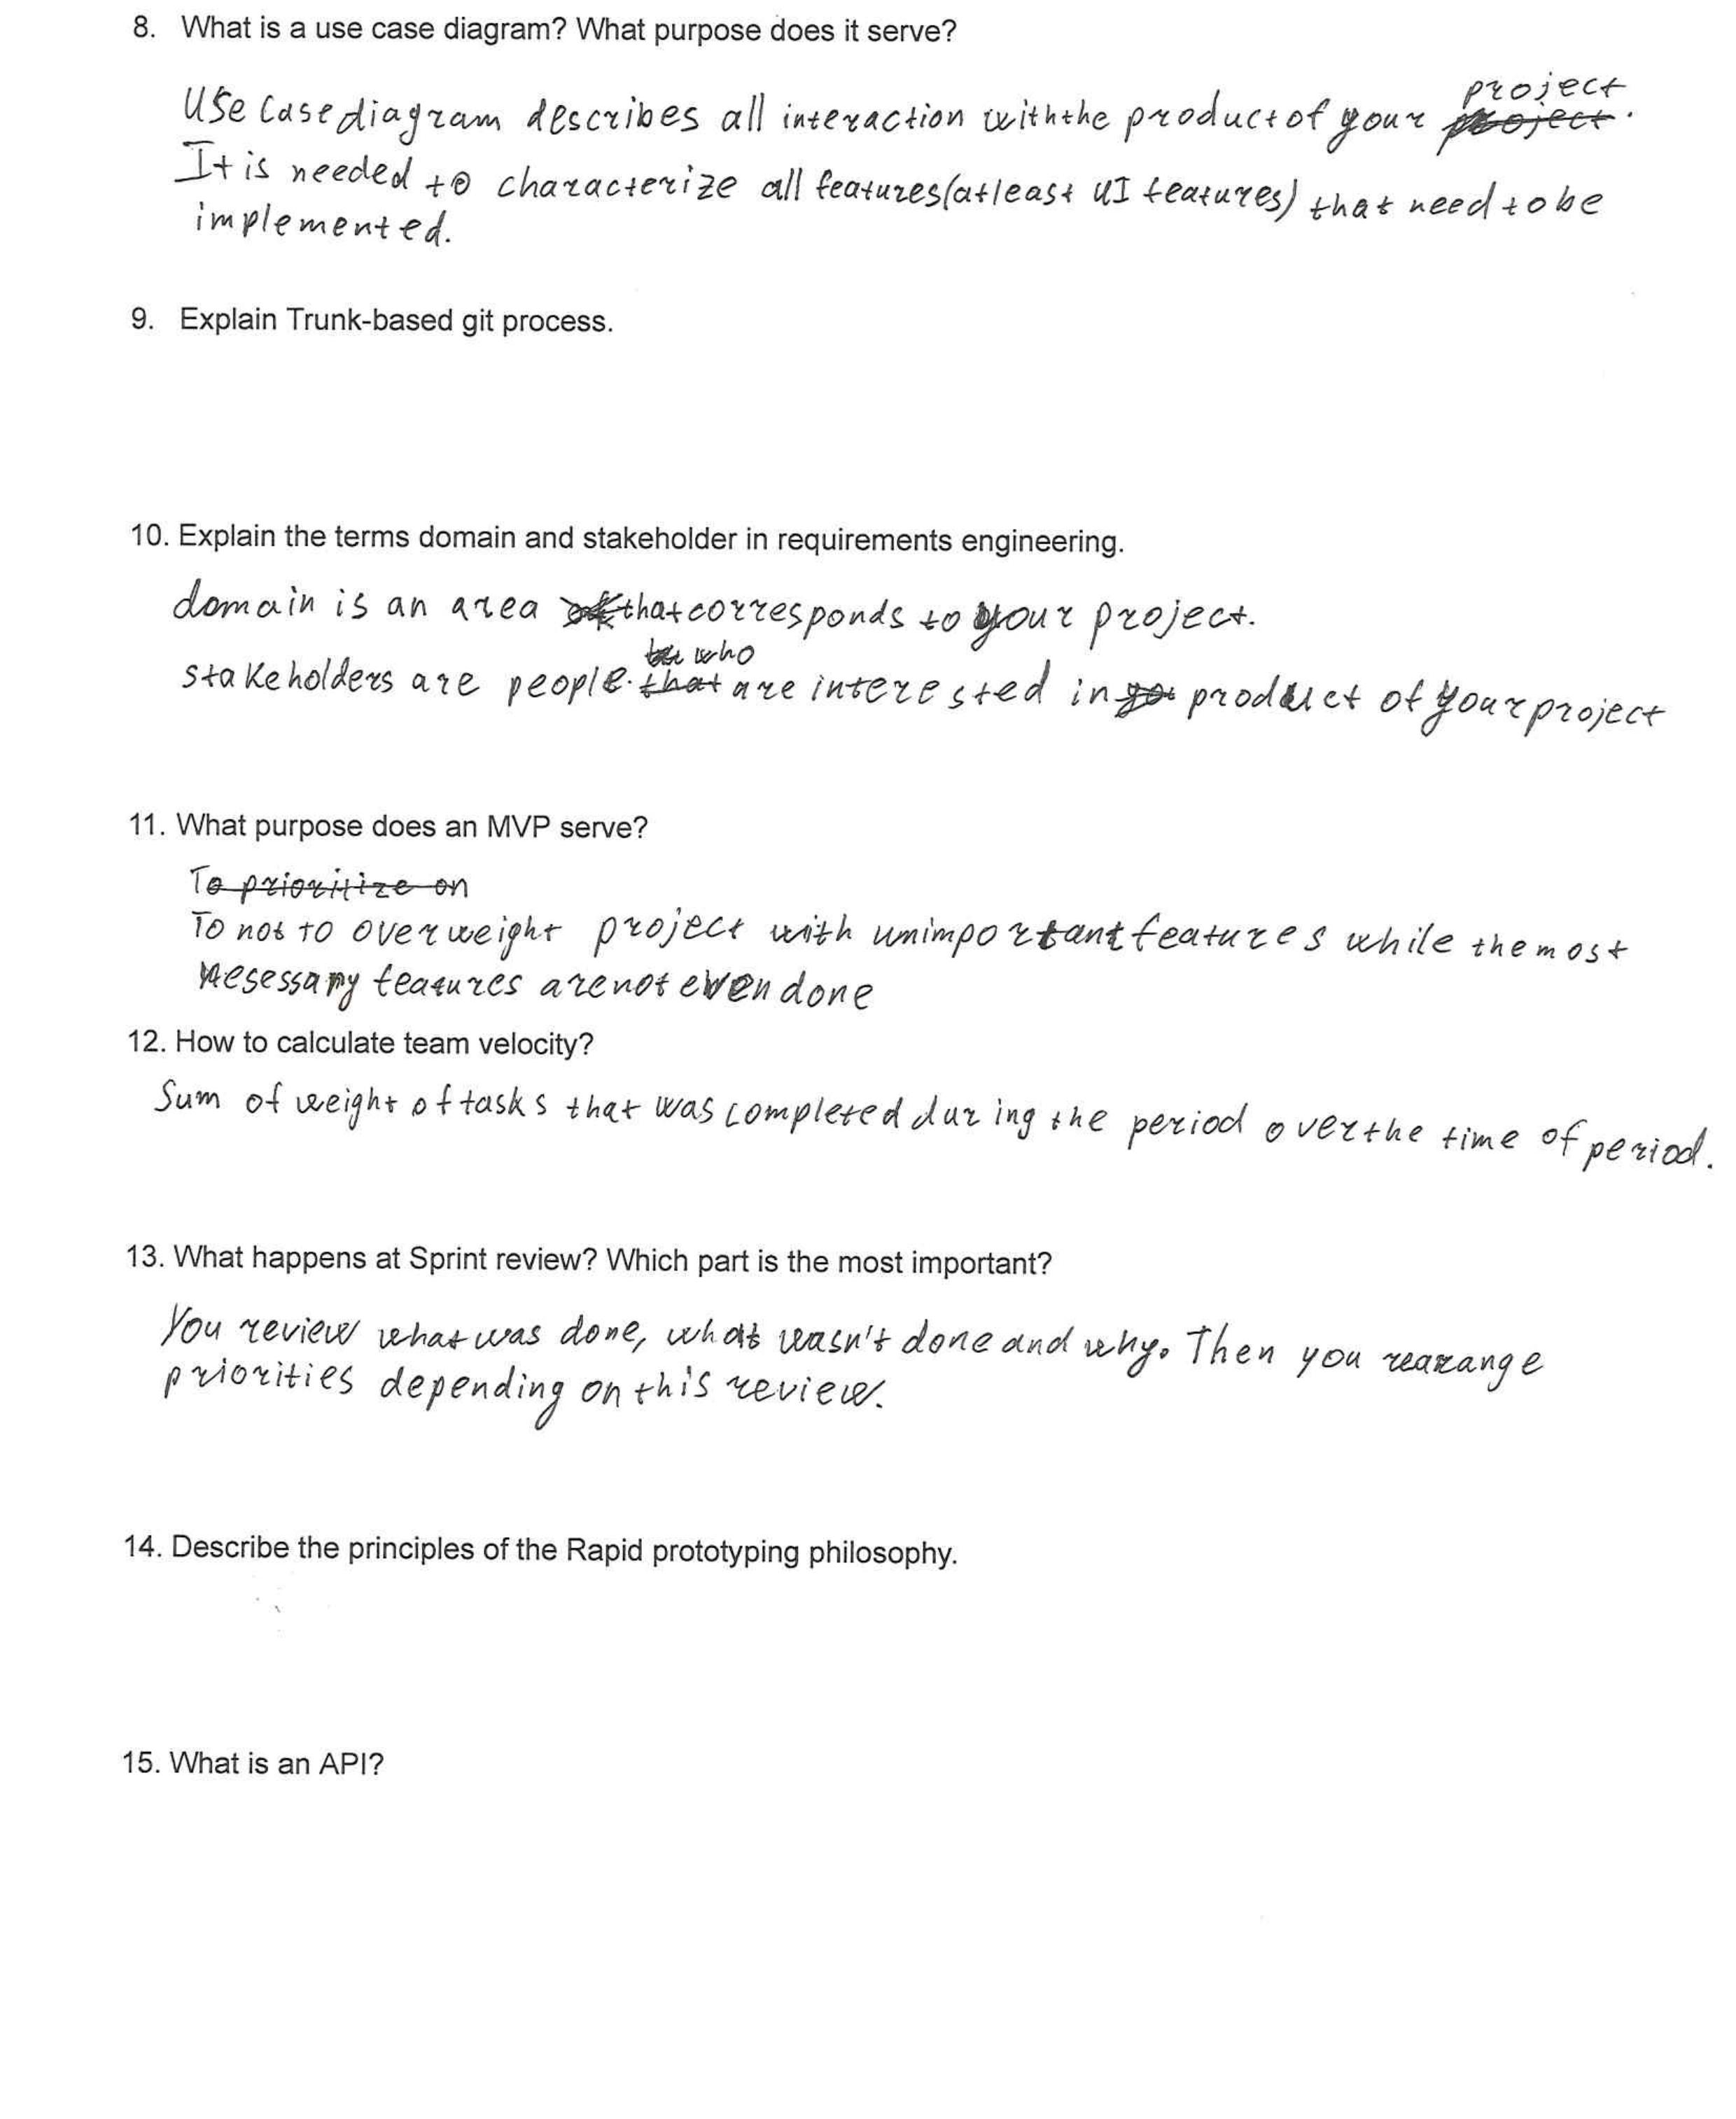 8. What is a use case diagram? What purpose does it serve?
project
Use case diagram describes all interaction with the product of your project.
It is needed to characterize all features (at least UI features) that need to be
implemented.
9. Explain Trunk-based git process.
10. Explain the terms domain and stakeholder in requirements engineering.
domain is an area that corresponds to your project.
who
stakeholders are people that are interested in product of your project
11. What purpose does an MVP serve?
To prioritize on
To not to overweight project with unimportant features while the most
nesessary features are not even done
12. How to calculate team velocity?
Sum of weight of tasks that was completed during the period over the time of period.
13. What happens at Sprint review? Which part is the most important?
You review what was done, what wasn't done and why. Then you rearange
priorities depending on this review.
14. Describe the principles of the Rapid prototyping philosophy.
15. What is an API?